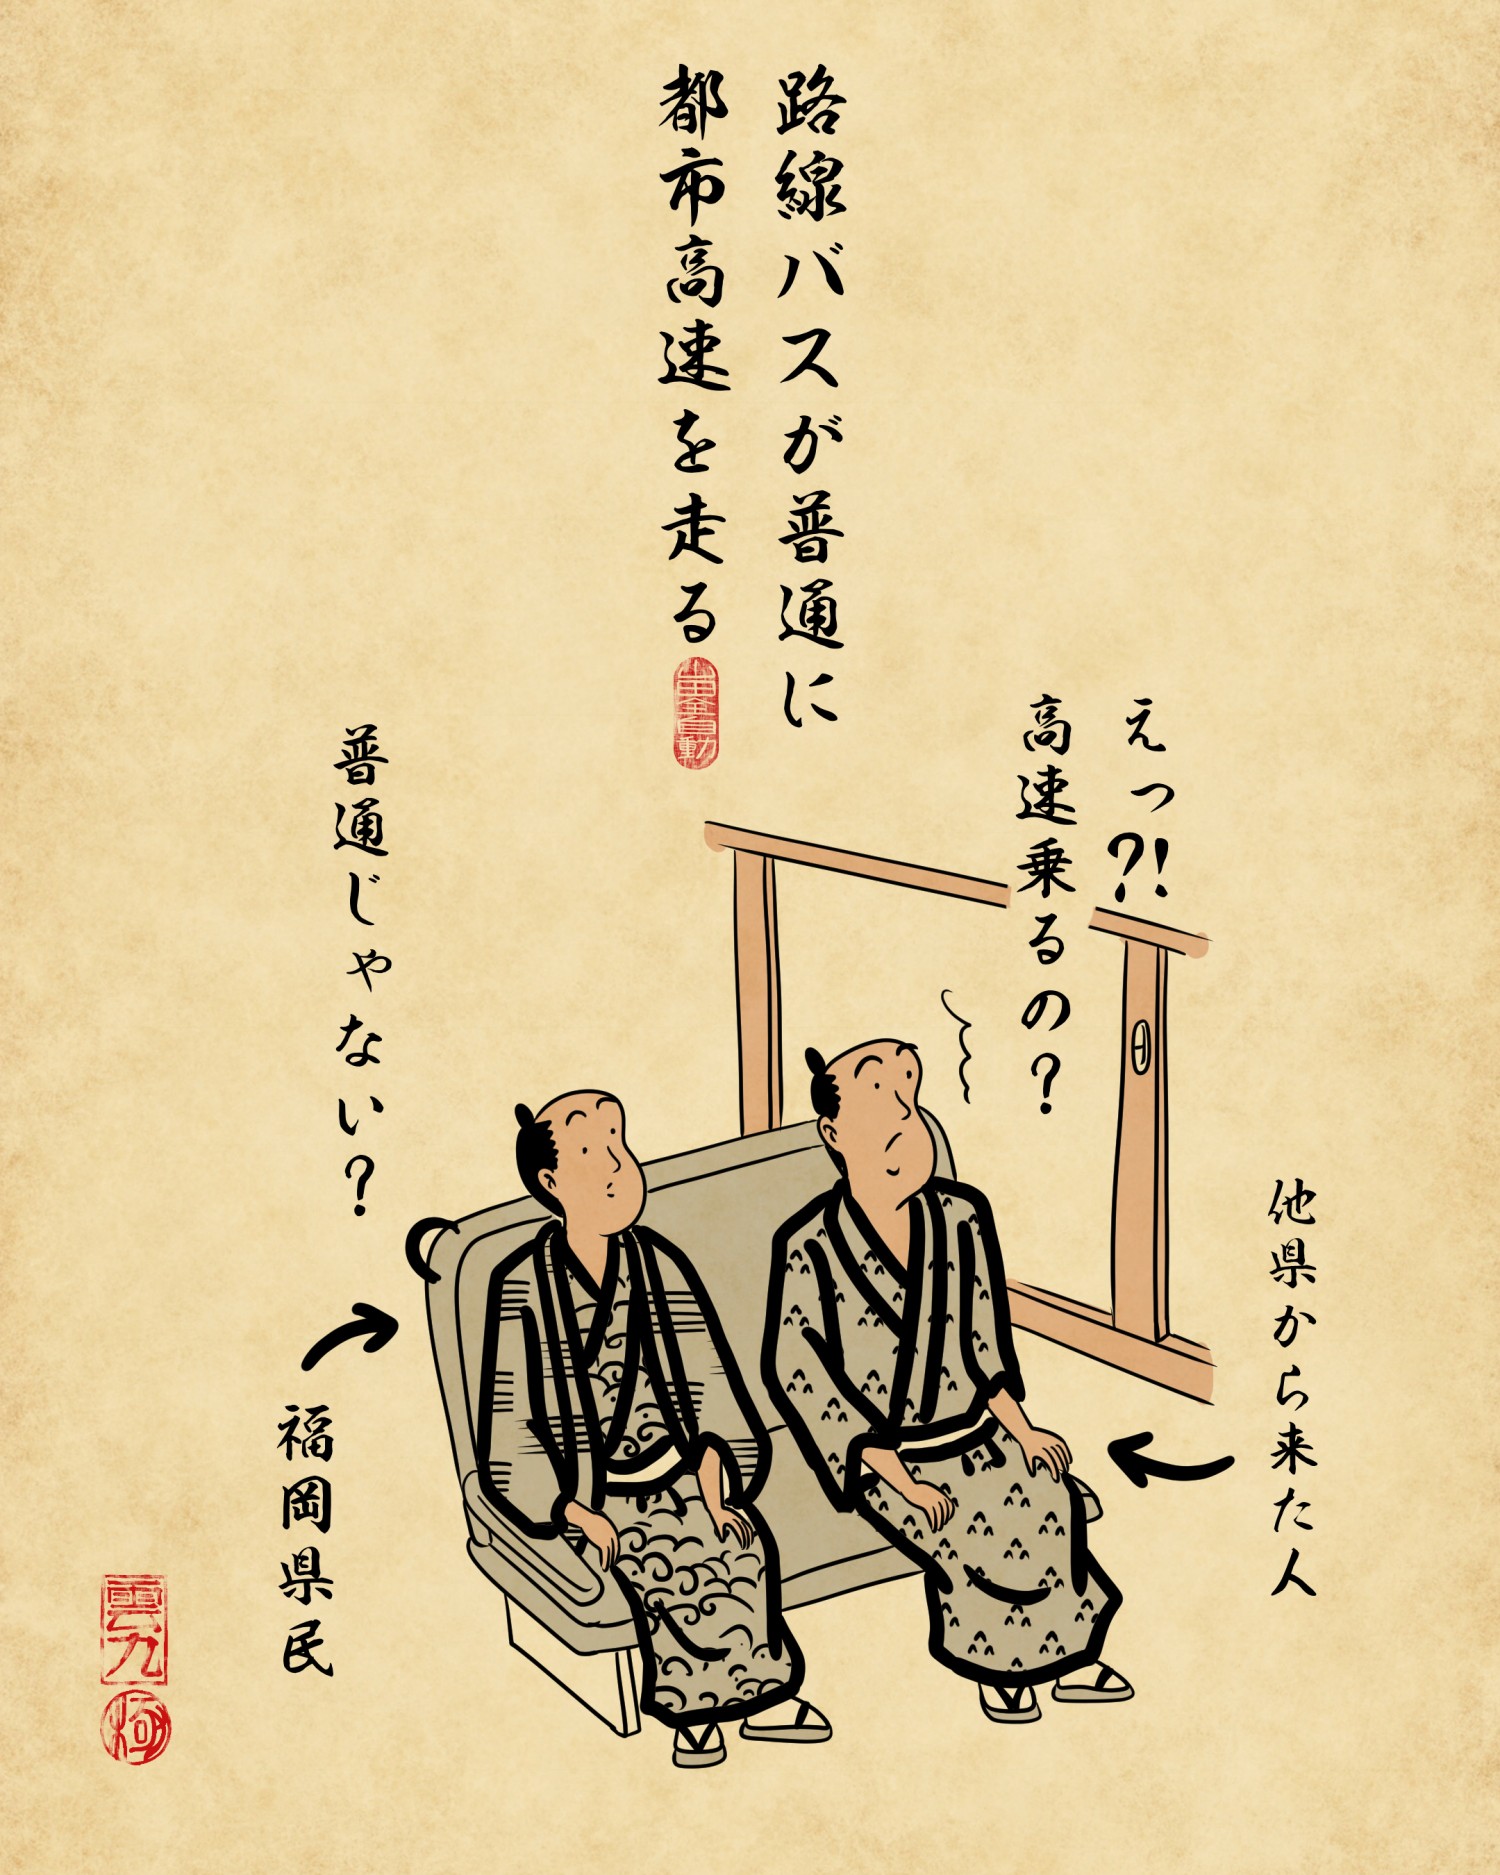 路線バスが普通に
都市高速を走る
えっ?!
高速乗るの?
他県から来た人
普通じゃない?
福岡県民